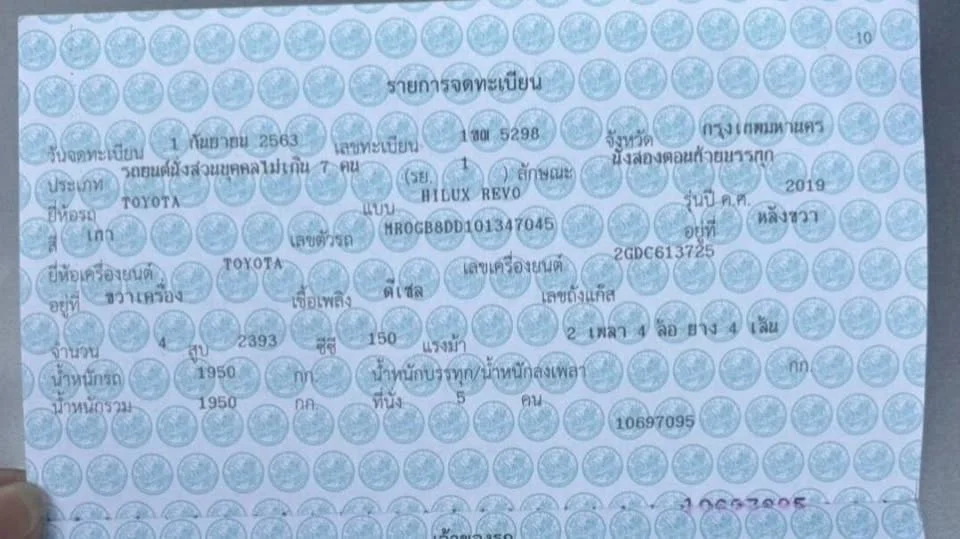 10
รายการจดทะเบียน
วันจดทะเบียน 1 กันยายน 2563 เลขทะเบียน 1ขฒ 5298 จังหวัด กรุงเทพมหานคร
ประเภท รถยนต์นั่งส่วนบุคคลไม่เกิน 7 คน (รย. 1 ) ลักษณะ นั่งสองตอนท้ายบรรทุก
ยี่ห้อรถ TOYOTA แบบ HILUX REVO รุ่นปี ค.ศ. 2019
สี เทา เลขตัวรถ MR0GB8DD101347045 อยู่ที่ หลังขวา
ยี่ห้อเครื่องยนต์ TOYOTA เลขเครื่องยนต์ 2GDC613725
อยู่ที่ ขวาเครื่อง เชื้อเพลิง ดีเซล เลขถังแก๊ส
จำนวน 4 สูบ 2393 ซีซี 150 แรงม้า 2 เพลา 4 ล้อ ยาง 4 เส้น
น้ำหนักรถ 1950 กก. น้ำหนักบรรทุก/น้ำหนักลงเพลา กก.
น้ำหนักรวม 1950 กก. ที่นั่ง 5 คน
10697095
10697095
เจ้าของรถ